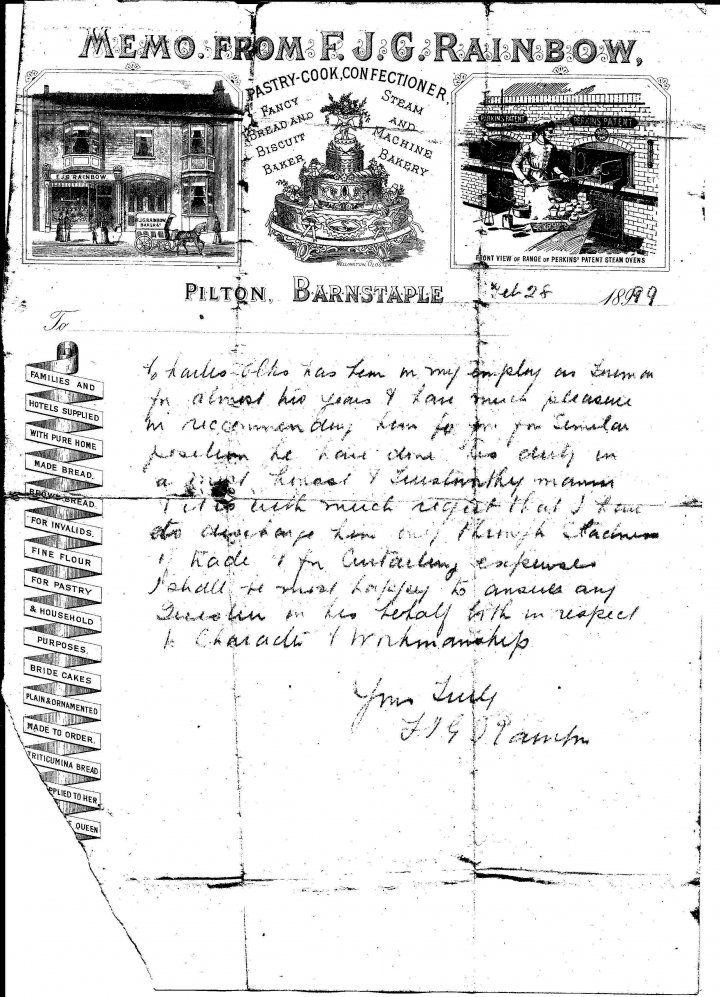 MEMO. FROM F. J. G. RAINBOW,
PASTRY-COOK, CONFECTIONER,
FANCY
BREAD AND
BISCUIT
BAKER
STEAM
AND
MACHINE
BAKERY
E.J.G. RAINBOW
J.G. RAINBOW
BAKER &
PERKINS PATENT
PERKINS PATENT
WELLINGTON, GLOSTER
FRONT VIEW OF RANGE OF PERKINS' PATENT STEAM OVENS
PILTON, BARNSTAPLE
Feb 28 1899
To
FAMILIES AND
HOTELS SUPPLIED
WITH PURE HOME
MADE BREAD,
BROWN BREAD,
FOR INVALIDS.
FINE FLOUR
FOR PASTRY
& HOUSEHOLD
PURPOSES.
BRIDE CAKES
PLAIN & ORNAMENTED
MADE TO ORDER.
TRITICUMINA BREAD
PPLIED TO HER
QUEEN
Charles has been in my employ as Foreman
for almost two years & have much pleasure
in recommending him for similar
position he have done his duty in
a most honest & trustworthy manner
& it is with much regret that I have
to discharge him only through slackness
of trade & for curtailing expenses
I shall be most happy to answer any
question on his behalf both in respect
to Character & Workmanship
Yours Truly
F J G Rainbow